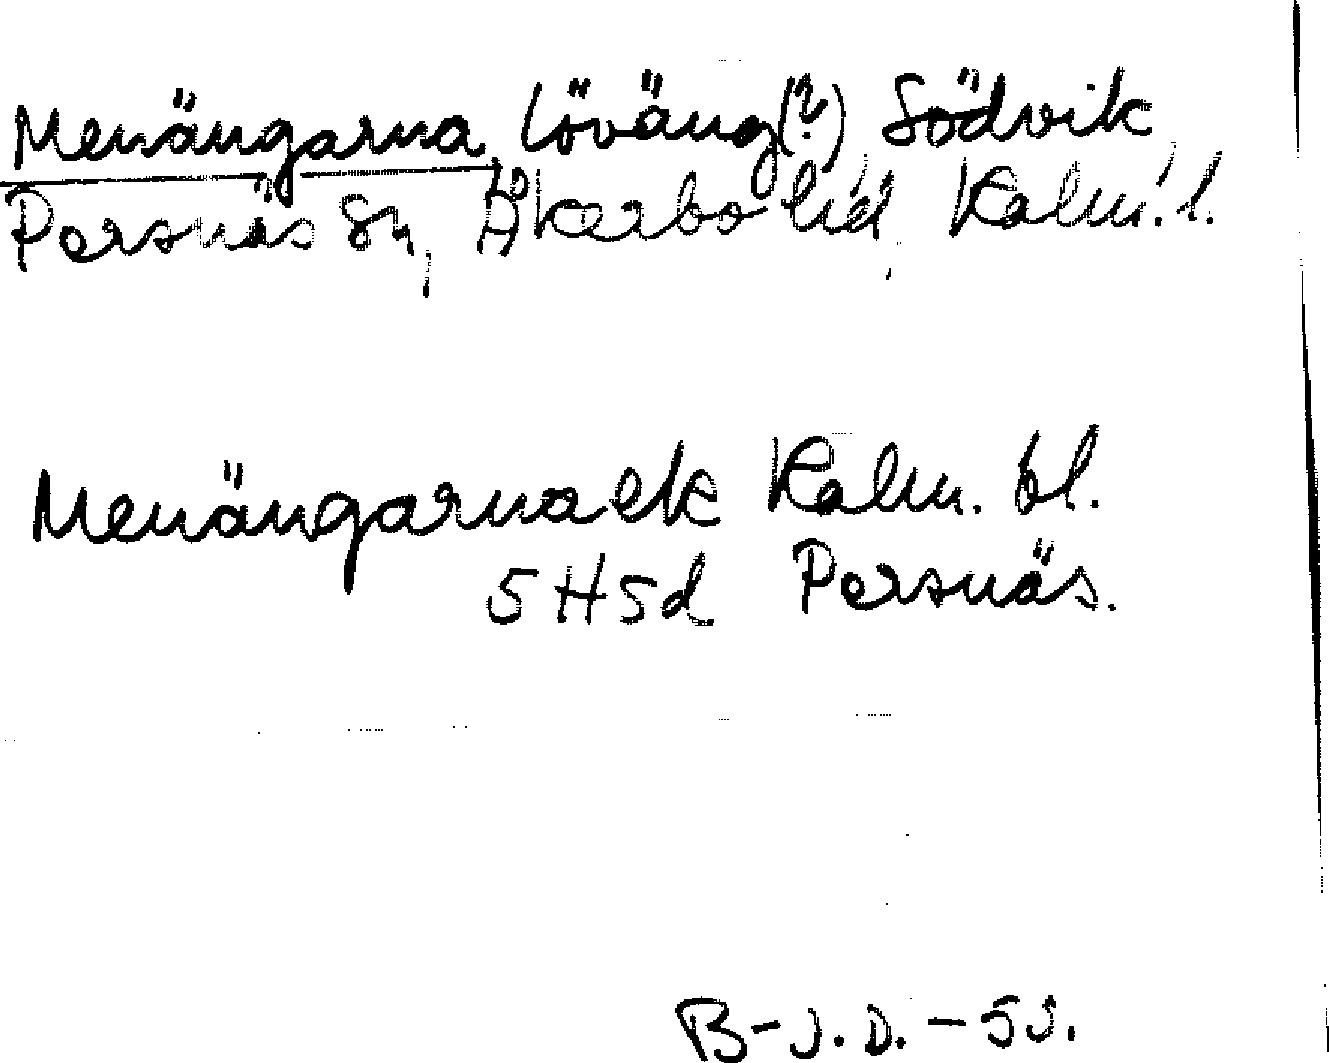 Menängarna, löväng(?) Södvik,
Persnäs sn, Åkerbo hd, Kalm. l.
Menängarna ek Kalm. bl.
5H5d Persnäs.
B-J.D. -